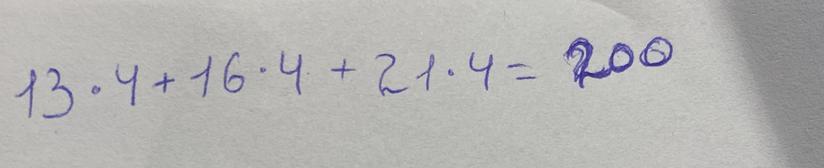 13·4+16·4+21·4=200